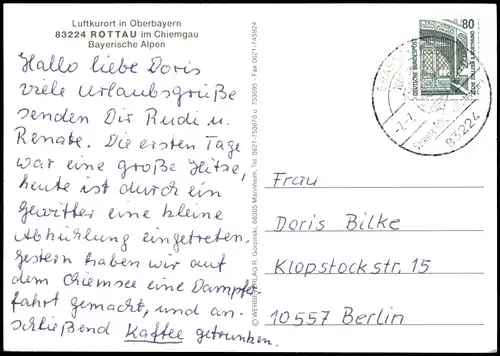 Luftkurort in Oberbayern
83224 ROTTAU im Chiemgau
Bayerische Alpen
Hallo liebe Doris
viele Urlaubsgrüße
senden Dir Rudi u.
Renate. Die ersten Tage
war eine große Hitze,
heute ist durch ein
Gewitter eine kleine
Abkühlung eingetreten.
Gestern haben wir auf
dem Chiemsee eine Dampfer-
fahrt gemacht, und an-
schließend Kaffee getrunken.
© WERBEVERLAG R. Gorzinski, 68305 Mannheim, Tel. 0621-735670 u. 753695 · Fax 0621-745924
80
DEUTSCHE BUNDESPOST
ZECHE ZOLLERN II DORTMUND
83224
Frau
Doris Bilke
Klopstockstr. 15
10557 Berlin